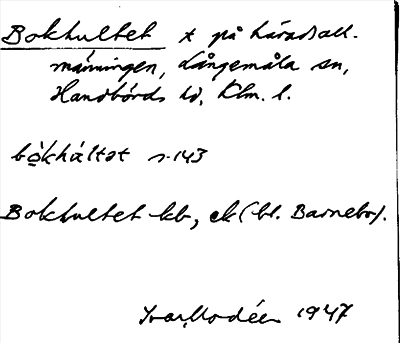 Bokhultet t på häradsall-
männingen, Långemåla sn,
Handbörds hd, Klm. l.
bo̱khúltət n. 143
Bokhultet kb, ek (bl. Barnebo).
Ivar Modéer 1947